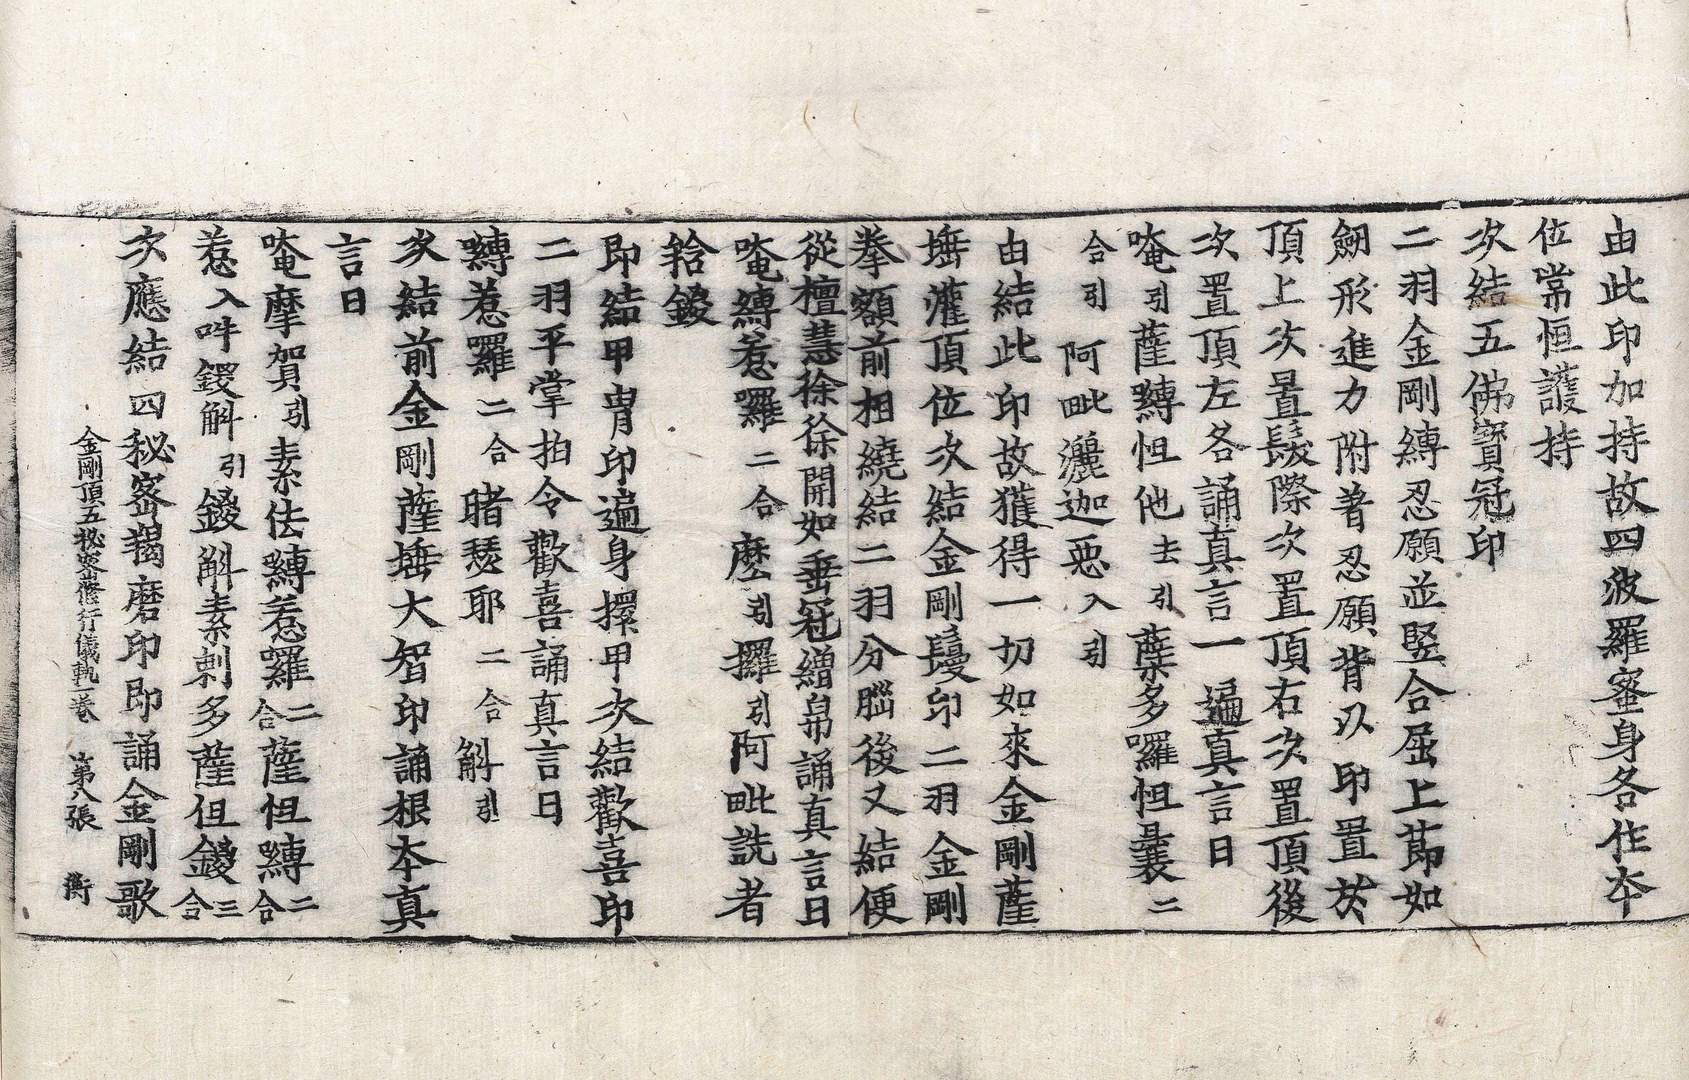 由此印加持故四波羅蜜身各住本
位常恒護持
次結五佛寶冠印
二羽金剛縛忍願並竪合屈上莭如
劒形進力附著忍願背以印置於
頂上次置髮際次置頂右次置頂後
次置頂左各誦真言一遍真言曰
唵引薩嚩怛他去引蘖多囉怛曩二
合引 阿毗灑迦惡入引
由結此印故獲得一切如來金剛薩
埵灌頂位次結金剛鬘印二羽金剛
拳額前相繞結二羽分腦後又結便
從檀慧徐徐開如垂冠繒帛誦真言曰
唵嚩惹囉二合麽引攞引阿毗詵者
𤚥鑁
即結甲冑印遍身擐甲次結歡喜印
二羽平掌拍令歡喜誦真言曰
嚩惹囉二合睹瑟耶二合斛引
次結前金剛薩埵大智印誦根本真
言曰
唵摩賀引素佉嚩惹囉二合薩怛嚩二合
惹入吽鑁斛引鑁斛素剌多薩怛鑁三合
次應結四秘密羯磨印即誦金剛歌
金剛頂五秘密修行儀軌一卷 第八張 衡